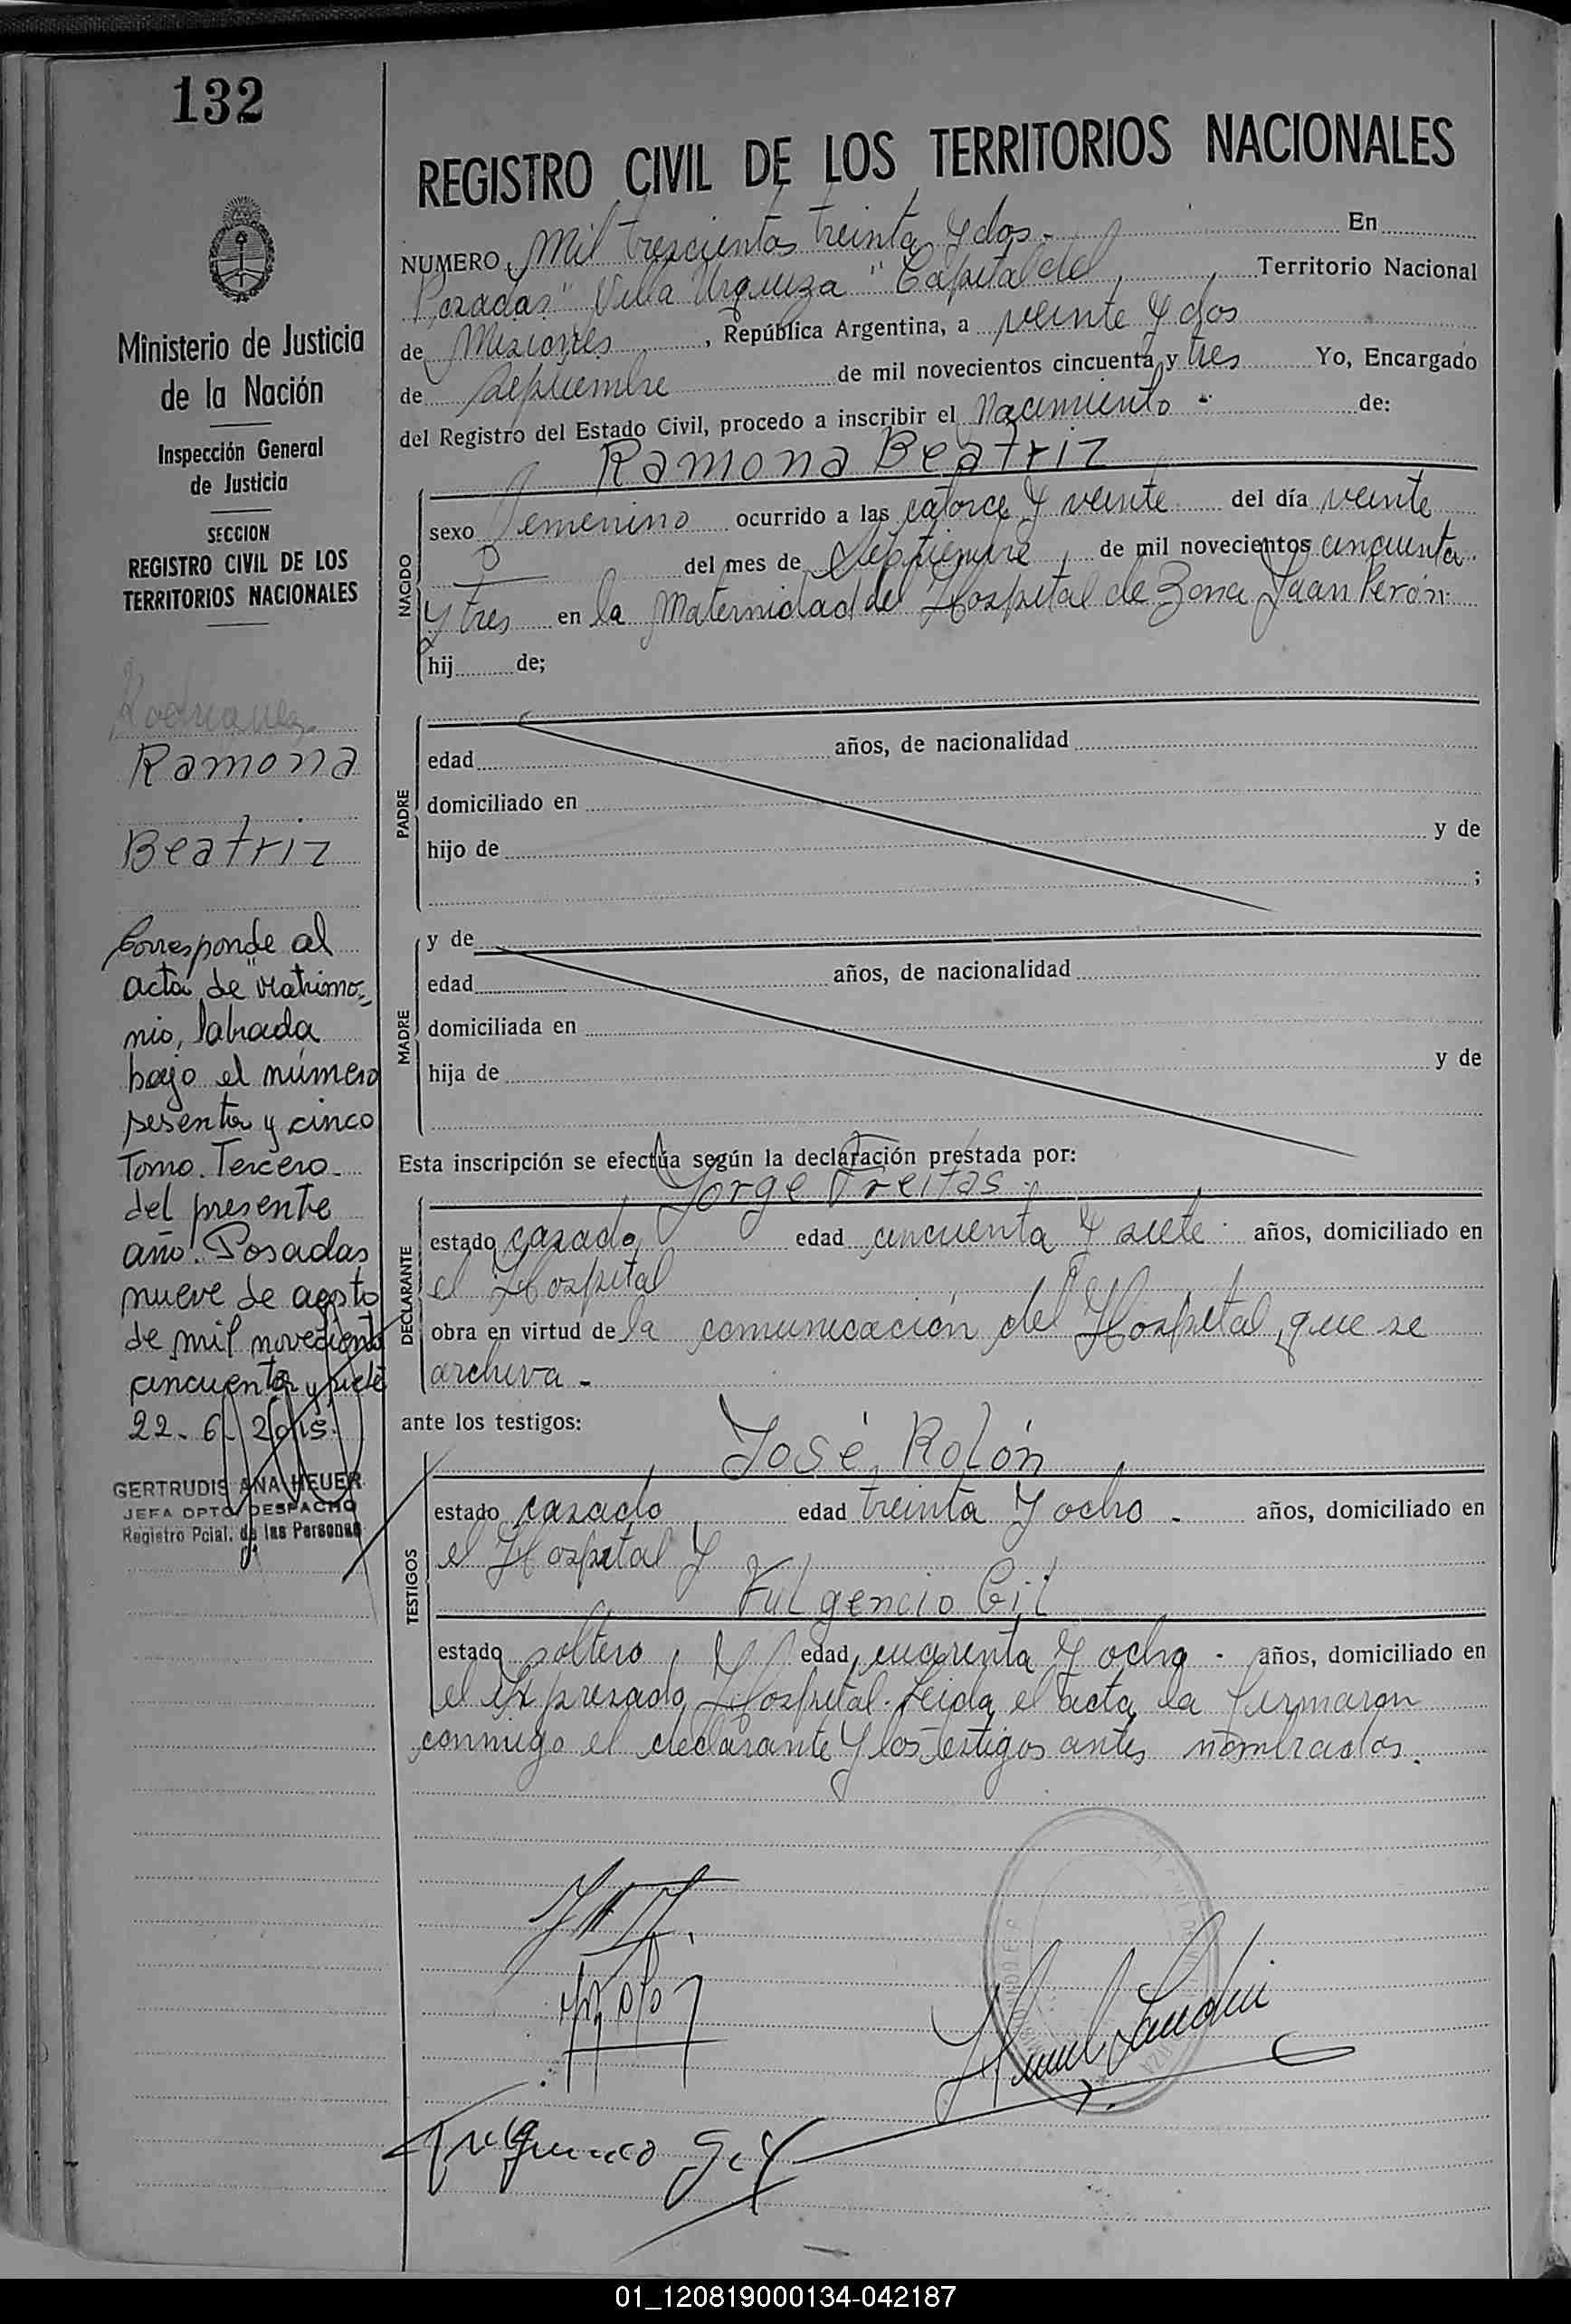 132
REGISTRO CIVIL DE LOS TERRITORIOS NACIONALES
NUMERO Mil trescientos treinta y dos.- En
Posadas "Villa Urquiza" Capital del, Territorio Nacional
de Misiones, República Argentina, a veinte y dos
de septiembre de mil novecientos cincuenta y tres Yo, Encargado
del Registro del Estado Civil, procedo a inscribir el Nacimiento - de:
Ramona Beatriz
NACIDO
sexo Femenino ocurrido a las catorce y veinte del día veinte
del mes de Septiembre, de mil novecientos cincuenta
y tres en la Maternidad del Hospital de Zona Juan Perón
hij de;
PADRE
edad años, de nacionalidad
domiciliado en
hijo de y de
;
MADRE
y de
edad años, de nacionalidad
domiciliada en
hija de y de
Esta inscripción se efectúa según la declaración prestada por:
Jorge Freitas.
DECLARANTE
estado casado edad cincuenta y siete - años, domiciliado en
el Hospital
obra en virtud de la comunicación del Hospital, que se
archiva.-
ante los testigos:
José Rolón
TESTIGOS
estado casado, edad treinta y ocho - años, domiciliado en
el Hospital y
Fulgencio Gil
estado soltero, y edad cuarenta y ocho - años, domiciliado en
el expresado Hospital. Leida el acta la firmaron
conmigo el declarante y los testigos antes nombrados.
Ministerio de Justicia
de la Nación
Inspección General
de Justicia
SECCION
REGISTRO CIVIL DE LOS
TERRITORIOS NACIONALES
Rodriguez
Ramona
Beatriz
Corresponde al
acta de "Matrimo=
nio, labrada
bajo el número
sesenta y cinco
Tomo. Tercero.
del presente
año. Posadas
nueve de agosto
de mil novecientos
cincuenta y siete
22-6-2015.
GERTRUDIS ANA HEUER
JEFA DPTO DESPACHO
Registro Pcial. de las Personas
01_120819000134-042187